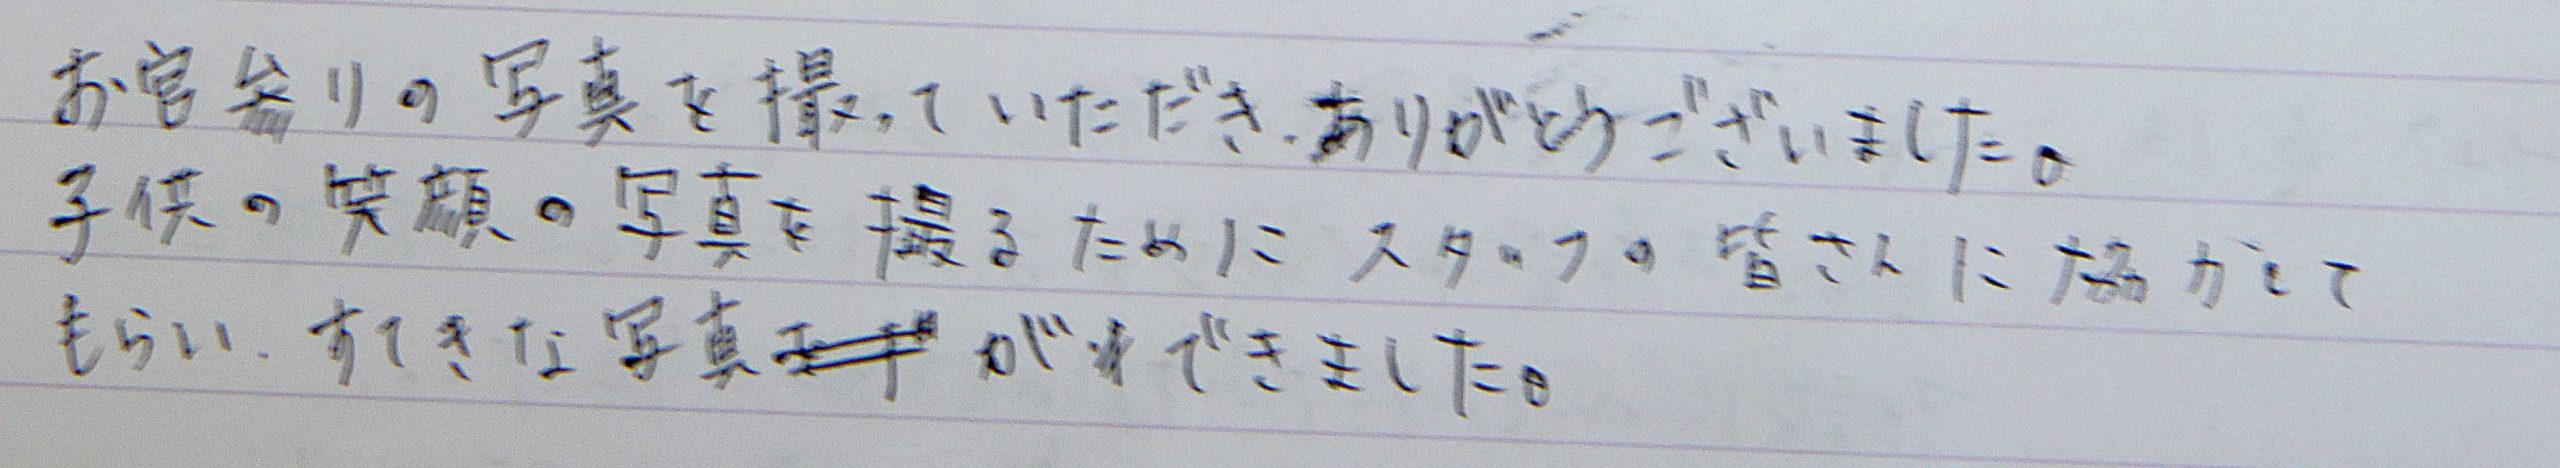 お宮参りの写真を撮っていただき、ありがとうございました。
子供の笑顔の写真を撮るためにスタッフの皆さんに協力して
もらい、すてきな写真ができました。